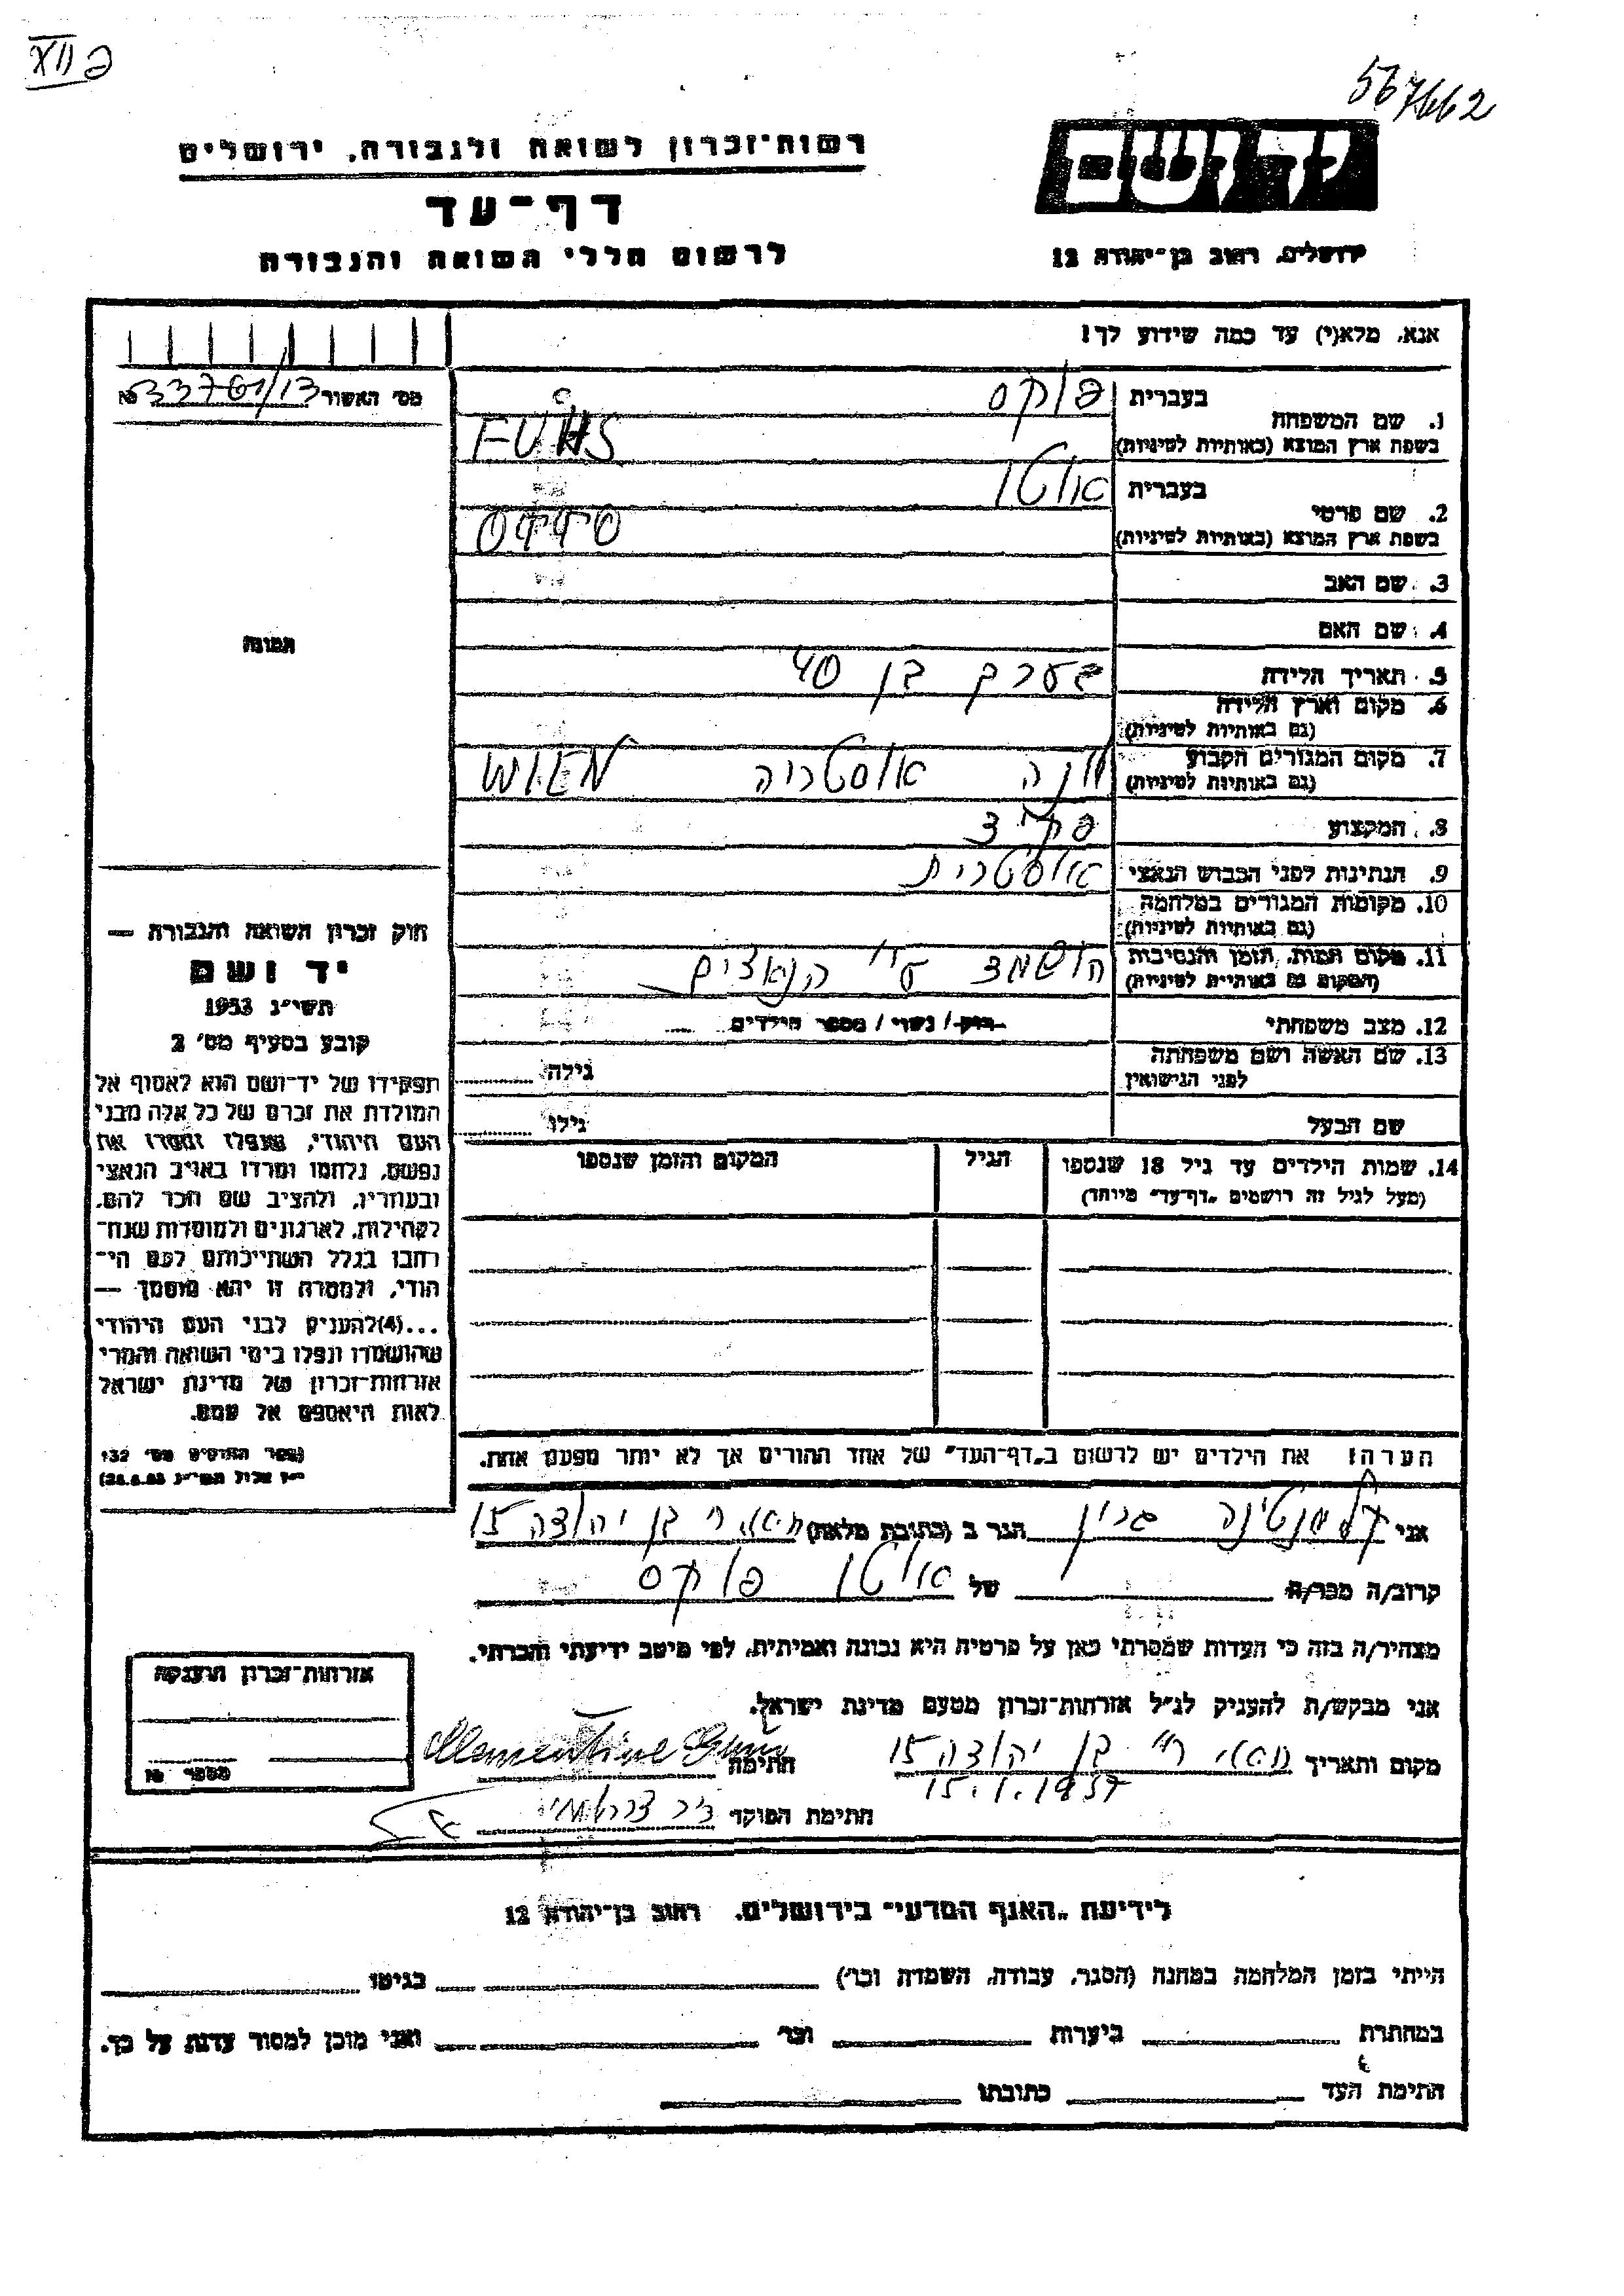 פ XII
567662
רשות־זכרון לשואה ולגבורה, ירושלים
דף־עד
לרשום חללי השואה והגבורה
יד ושם
ירושלים, רחוב בן־יהודה 12
אנא, מלא(י) עד כמה שידוע לך!
מס׳ האשור 33761/13 №
1. שם המשפחה
בעברית פוקס
בשפת ארץ המוצא (באותיות לטיניות) FUCHS
2. שם פרטי
בעברית אוטו
בשפת ארץ המוצא (באותיות לטיניות) OTTO
3. שם האב
4. שם האם
5. תאריך הלידה בערך בן 40
6. מקום וארץ הלידה
(גם באותיות לטיניות)
7. מקום המגורים הקבוע וינה אוסטריה WIEN
(גם באותיות לטיניות)
8. המקצוע פקיד
9. הנתינות לפני הכבוש הנאצי אוסטרית
10. מקומות המגורים במלחמה
(גם באותיות לטיניות)
11. מקום המות, הזמן והנסיבות הושמד ע״י הנאצים
(המקום גם באותיות לטיניות)
12. מצב משפחתי רווק / נשוי / מספר הילדים
13. שם האשה ושם משפחתה גילה
לפני הנישואין
שם הבעל גילו
14. שמות הילדים עד גיל 18 שנספו
(מעל לגיל זה רושמים „דף־עד״ מיוחד)
הגיל
המקום והזמן שנספו
הערה: את הילדים יש לרשום ב„דף־העד״ של אחד ההורים אך לא יותר מפעם אחת.
תמונה
חוק זכרון השואה והגבורה —
יד ושם
תשי״ג 1953
קובע בסעיף מס׳ 2
תפקידו של יד־ושם הוא לאסוף אל
המולדת את זכרם של כל אלה מבני
העם היהודי, שנפלו ומסרו את
נפשם, נלחמו ומרדו באויב הנאצי
ובעוזריו, ולהציב שם וזכר להם,
לקהילות, לארגונים ולמוסדות שנח־
רבו בגלל השתייכותם לעם הי־
הודי, ולמטרה זו יהא מוסמך —
...(4)להעניק לבני העם היהודי
שהושמדו ונפלו בימי השואה והמרי
אזרחות־זכרון של מדינת ישראל
לאות היאספם אל עמם.
(ספר החוקים מס׳ 132
י״ז אלול תשי״ג 28.8.53)
אני קלמנטינה גרין הגר ב (כתובת מלאה) בן יהודה 15
קרוב/ה מכר/ה של אוטו פוקס
מצהיר/ה בזה כי העדות שמסרתי כאן על פרטיה היא נכונה ואמיתית, לפי מיטב ידיעתי והכרתי.
אני מבקש/ת להעניק לנ״ל אזרחות־זכרון מטעם מדינת ישראל.
מקום ותאריך רח׳ בן יהודה 15 חתימה Klementine Grün
15.1.1957
חתימת הפוקד
אזרחות־זכרון הוענקה
מספר №
לידיעת „האגף המדעי״ בירושלים, רחוב בן־יהודה 12
הייתי בזמן המלחמה במחנה (הסגר, עבודה, השמדה וכו׳) בגיטו
במחתרת ביערות וכו׳ ואני מוכן למסור עדות על כך.
חתימת העד כתובתו